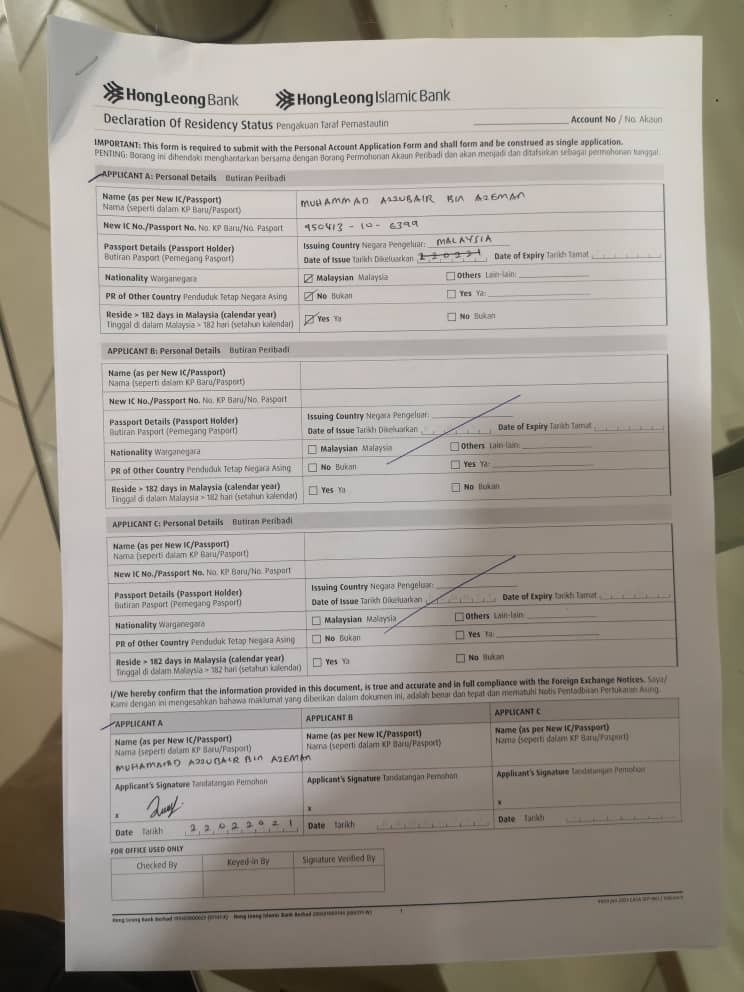 HongLeong Bank HongLeong Islamic Bank
Declaration Of Residency Status Pengakuan Taraf Pemastautin Account No / No. Akaun
IMPORTANT: This form is required to submit with the Personal Account Application Form and shall form and be construed as single application.
PENTING: Borang ini dihendaki menghantarkan bersama dengan Borang Permohonan Akaun Peribadi dan akan menjadi dan ditafsirkan sebagai permohonan tunggal.
APPLICANT A: Personal Details Butiran Peribadi
Name (as per New IC/Passport) MUHAMMAD AZZUBAIR BIN AZEMAN
Nama (seperti dalam KP Baru/Pasport)
New IC No./Passport No. No. KP Baru/No. Pasport 950413-10-6399
Passport Details (Passport Holder) Issuing Country Negara Pengeluar: MALAYSIA
Butiran Pasport (Pemegang Pasport) Date of Issue Tarikh Dikeluarkan Date of Expiry Tarikh Tamat
Nationality Warganegara Malaysian Malaysia Others Lain-lain:
PR of Other Country Penduduk Tetap Negara Asing No Bukan Yes Ya:
Reside > 182 days in Malaysia (calendar year) Yes Ya No Bukan
Tinggal di dalam Malaysia > 182 hari (setahun kalendar)
APPLICANT B: Personal Details Butiran Peribadi
Name (as per New IC/Passport)
Nama (seperti dalam KP Baru/Pasport)
New IC No./Passport No. No. KP Baru/No. Pasport
Passport Details (Passport Holder) Issuing Country Negara Pengeluar:
Butiran Pasport (Pemegang Pasport) Date of Issue Tarikh Dikeluarkan Date of Expiry Tarikh Tamat
Nationality Warganegara Malaysian Malaysia Others Lain-lain:
PR of Other Country Penduduk Tetap Negara Asing No Bukan Yes Ya:
Reside > 182 days in Malaysia (calendar year) Yes Ya No Bukan
Tinggal di dalam Malaysia > 182 hari (setahun kalendar)
APPLICANT C: Personal Details Butiran Peribadi
Name (as per New IC/Passport)
Nama (seperti dalam KP Baru/Pasport)
New IC No./Passport No. No. KP Baru/No. Pasport
Passport Details (Passport Holder) Issuing Country Negara Pengeluar:
Butiran Pasport (Pemegang Pasport) Date of Issue Tarikh Dikeluarkan Date of Expiry Tarikh Tamat
Nationality Warganegara Malaysian Malaysia Others Lain-lain:
PR of Other Country Penduduk Tetap Negara Asing No Bukan Yes Ya:
Reside > 182 days in Malaysia (calendar year) Yes Ya No Bukan
Tinggal di dalam Malaysia > 182 hari (setahun kalendar)
I/We hereby confirm that the information provided in this document, is true and accurate and in full compliance with the Foreign Exchange Notices. Saya/
Kami dengan ini mengesahkan bahawa maklumat yang diberikan dalam dokumen ini, adalah benar dan tepat dan mematuhi Notis Pentadbiran Pertukaran Asing.
APPLICANT A APPLICANT B APPLICANT C
Name (as per New IC/Passport) Name (as per New IC/Passport) Name (as per New IC/Passport)
Nama (seperti dalam KP Baru/Pasport) Nama (seperti dalam KP Baru/Pasport) Nama (seperti dalam KP Baru/Pasport)
MUHAMMAD AZZUBAIR BIN AZEMAN
Applicant's Signature Tandatangan Pemohon Applicant's Signature Tandatangan Pemohon Applicant's Signature Tandatangan Pemohon
x x x
Date Tarikh 22022021 Date Tarikh Date Tarikh
FOR OFFICE USED ONLY
Checked By Keyed-in By Signature Verified By
Hong Leong Bank Berhad Hong Leong Islamic Bank Berhad 1